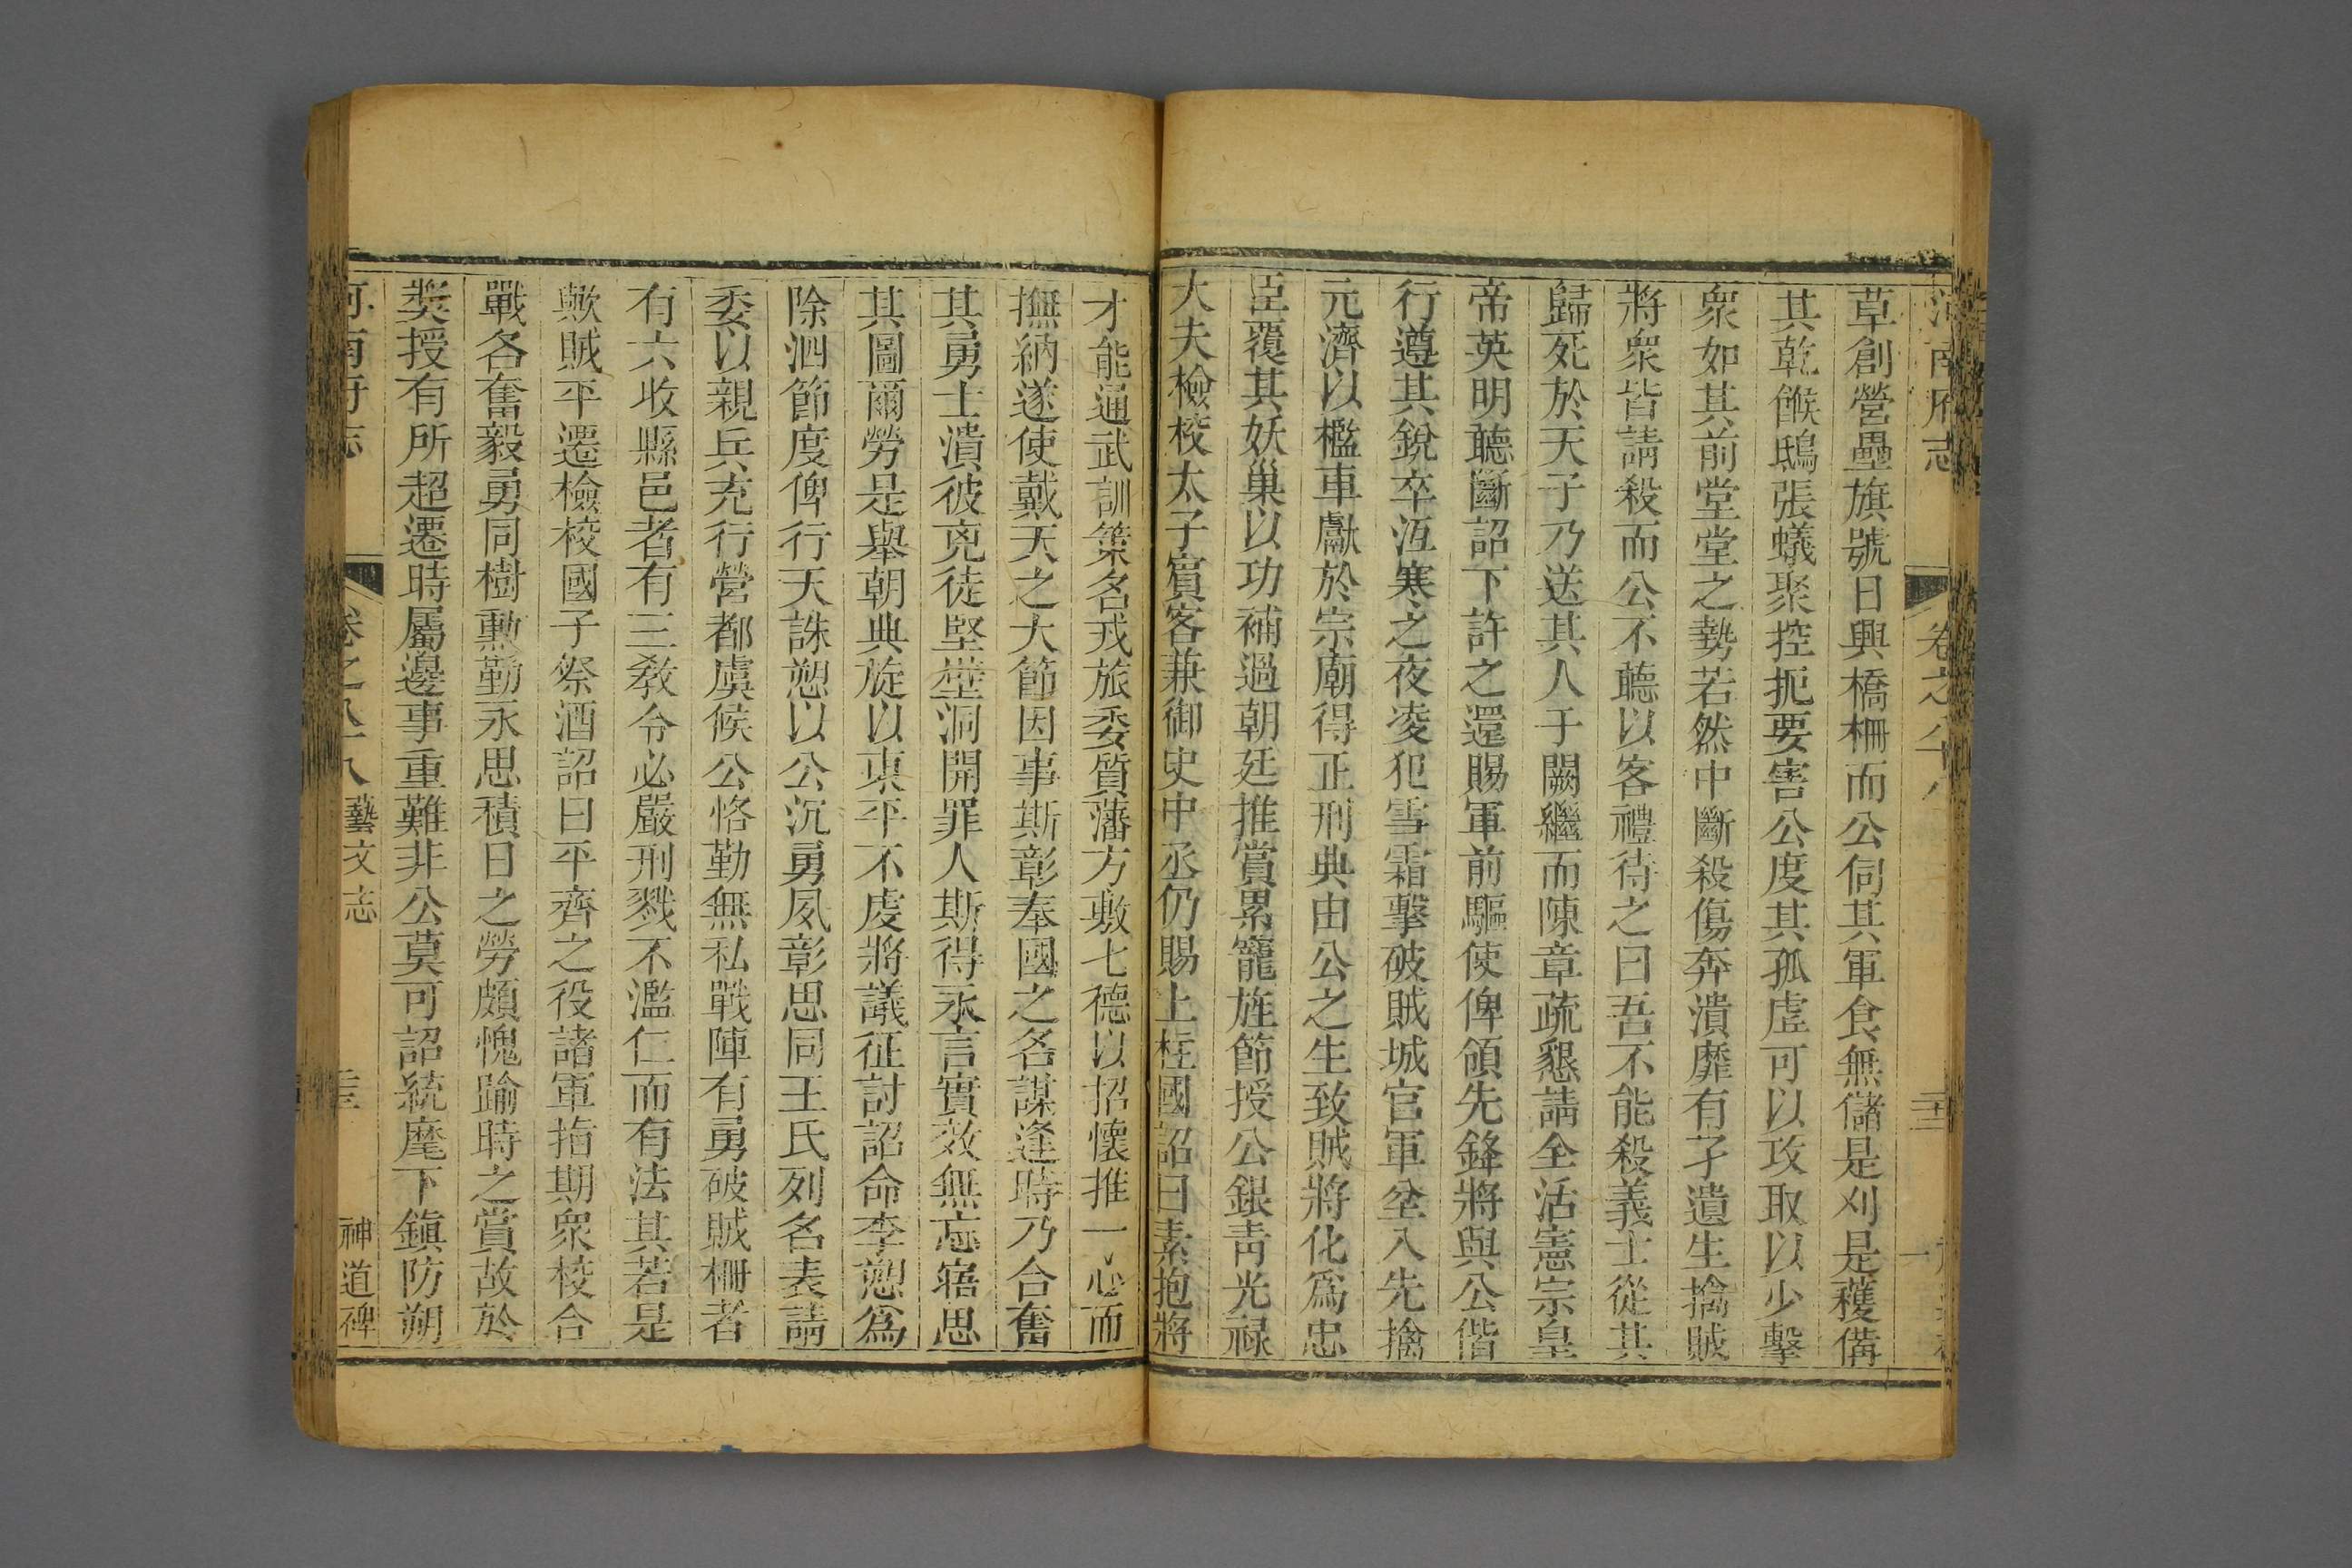 草創營壘旗號日興橋柵而公伺其軍食無儲是刈是穫偹
其乾餱鴟張蟻聚控扼要害公度其孤虛可以攻取以少擊
衆如其前堂堂之勢若然中斷殺傷奔潰靡有孑遺生擒賊
將衆皆請殺而公不聽以客禮待之曰吾不能殺義士從其
歸死於天子乃送其人于闕繼而陳章疏懇請全活憲宗皇
帝英明聽斷詔下許之還賜軍前驅使俾領先鋒將與公偕
行遵其銳卒沍寒之夜凌犯雪霜擊破賊城官軍坌入先擒
元濟以檻車獻於宗廟得正刑典由公之生致賊將化爲忠
臣覆其妖巢以功補過朝廷推賞累寵旌節授公銀青光祿
大夫檢校太子賓客兼御史中丞仍賜上柱國詔曰素抱將
才能通武訓策名戎旅委質藩方敷七德以招懷推一心而
撫納遂使戴天之大節因事斯彰奉國之各謀逢時乃合奮
其勇士潰彼兇徒堅壁洞開罪人斯得永言實效無忘寤思
其圖爾勞是舉朝典旋以東平不虔將議征討詔命李愬爲
除泗節度俾行天誅愬以公沉勇夙彰思同王氏列名表請
委以親兵充行營都虞候公恪勤無私戰陣有勇破賊柵者
有六收縣邑者有三敎令必嚴刑戮不濫仁而有法其若是
歟賊平遷檢校國子祭酒詔曰平齊之役諸軍指期衆校合
戰各奮毅勇同樹勳勤永思積日之勞頗愧踰時之賞故於
奬授有所超遷時屬邊事重難非公莫可詔統麾下鎭防朔
河南府志 卷之八十八 藝文志 神道碑